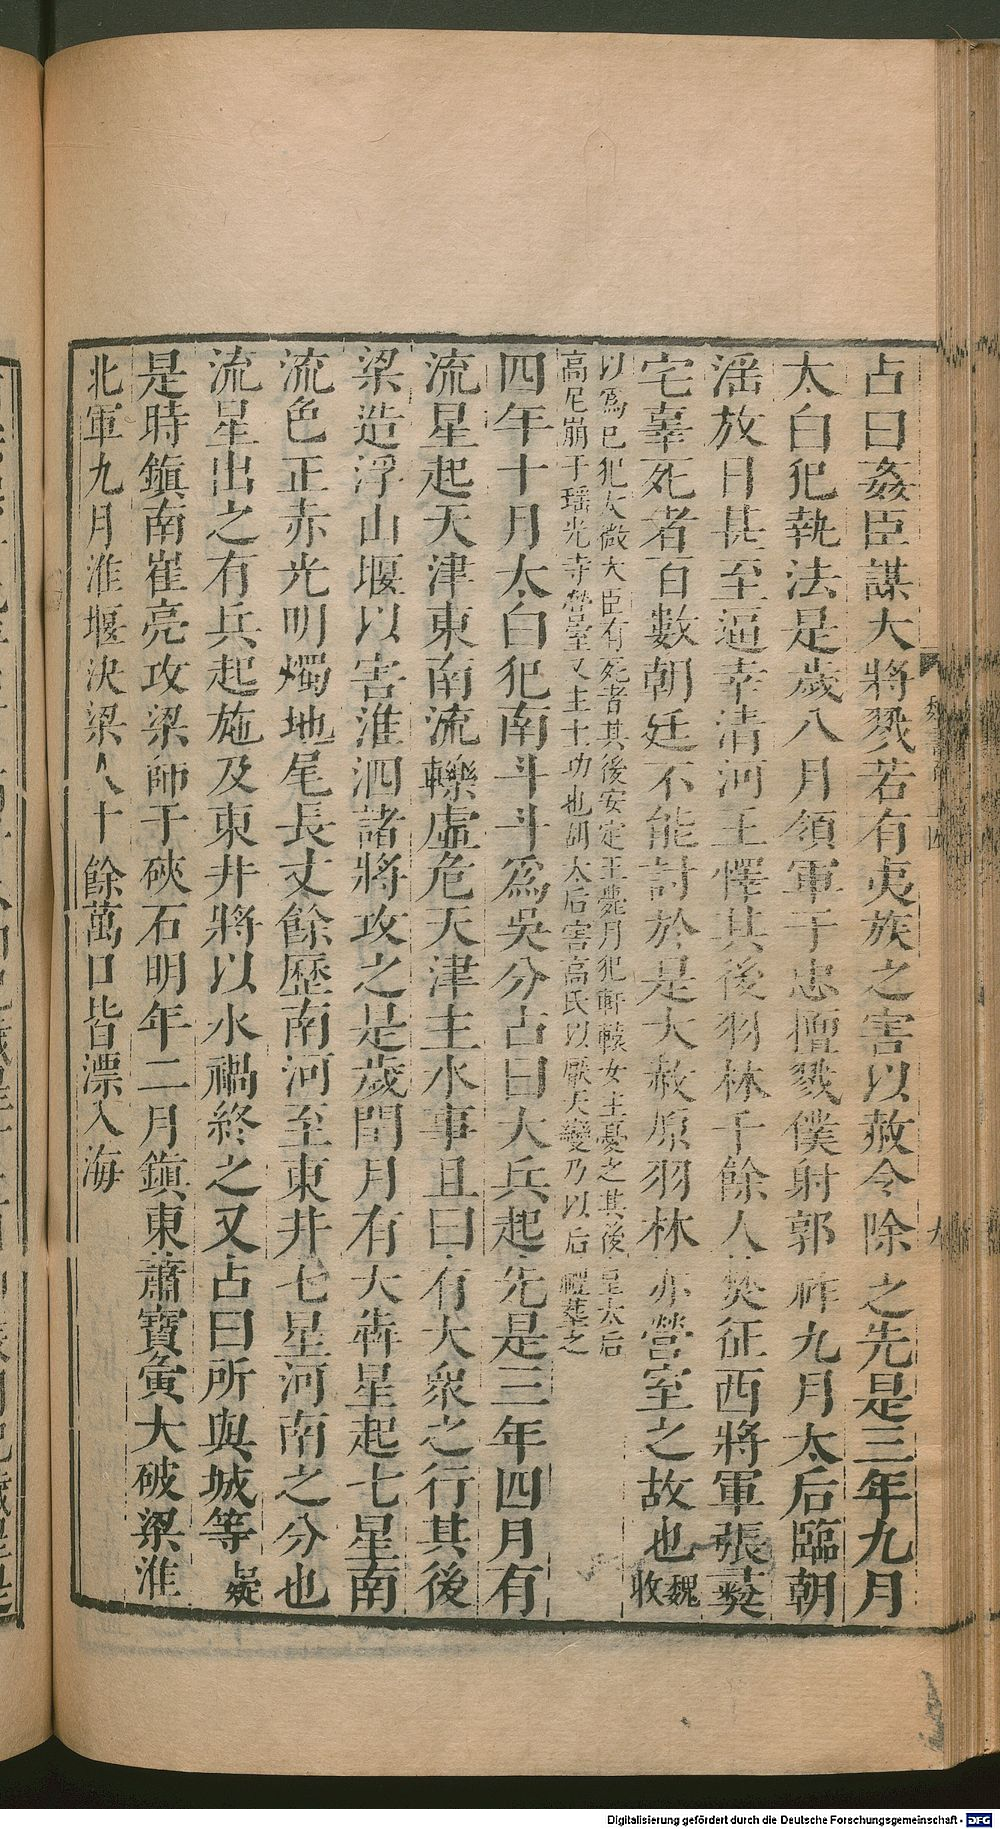 占曰姦臣謀大將戮若有夷族之害以赦令除之先是三年九月
太白犯執法是歲八月領軍于忠擅戮僕射郭祚九月太后臨朝
淫放日甚至逼幸清河王懌其後羽林千餘人焚征西將軍張彝
宅辜死者百數朝廷不能討於是大赦原羽林亦營室之故也魏收
以為巳犯太微大臣有死者其後安定王薨月犯軒轅女主憂之其後皇太后
高尼崩于瑶光寺營室又主土功也胡太后害高氏以厭天變乃以后禮葬之
四年十月太白犯南斗斗為吳分占曰大兵起先是三年四月有
流星起天津東南流轢虛危天津主水事且曰有大衆之行其後
梁造浮山堰以害淮泗諸將攻之是歲閏月有大奔星起七星南
流色正赤光明燭地尾長丈餘歷南河至東井七星河南之分也
流星出之有兵起施及東井將以水禍終之又占曰所與城等疑
是時鎮南崔亮攻梁師于硤石明年二月鎮東蕭寶夤大破梁淮
北軍九月淮堰決梁人十餘萬口皆漂入海
魏書
九
Digitalisierung gefördert durch die Deutsche Forschungsgemeinschaft - DFG